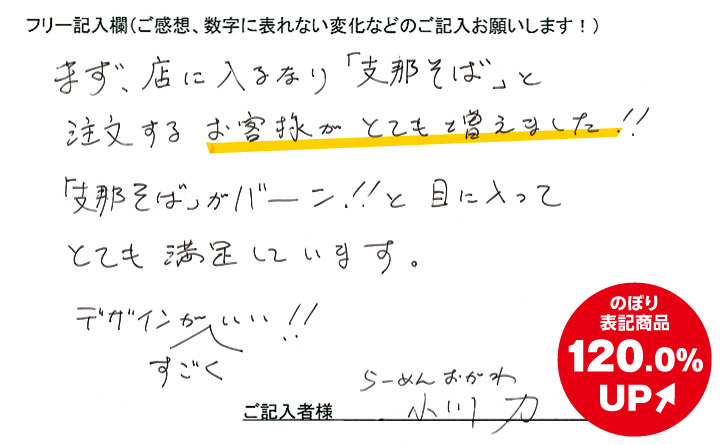 フリー記入欄(ご感想、数字に表れない変化などのご記入お願いします!)
まず、店に入るなり「支那そば」と
注文する お客様が とても増えました!!
「支那そば」がバーン!!と 目に入って
とても 満足しています。
デザインがいい!!
すごく
のぼり
表記商品
120.0%
UP
らーめんおがわ
ご記入者様 小川 力